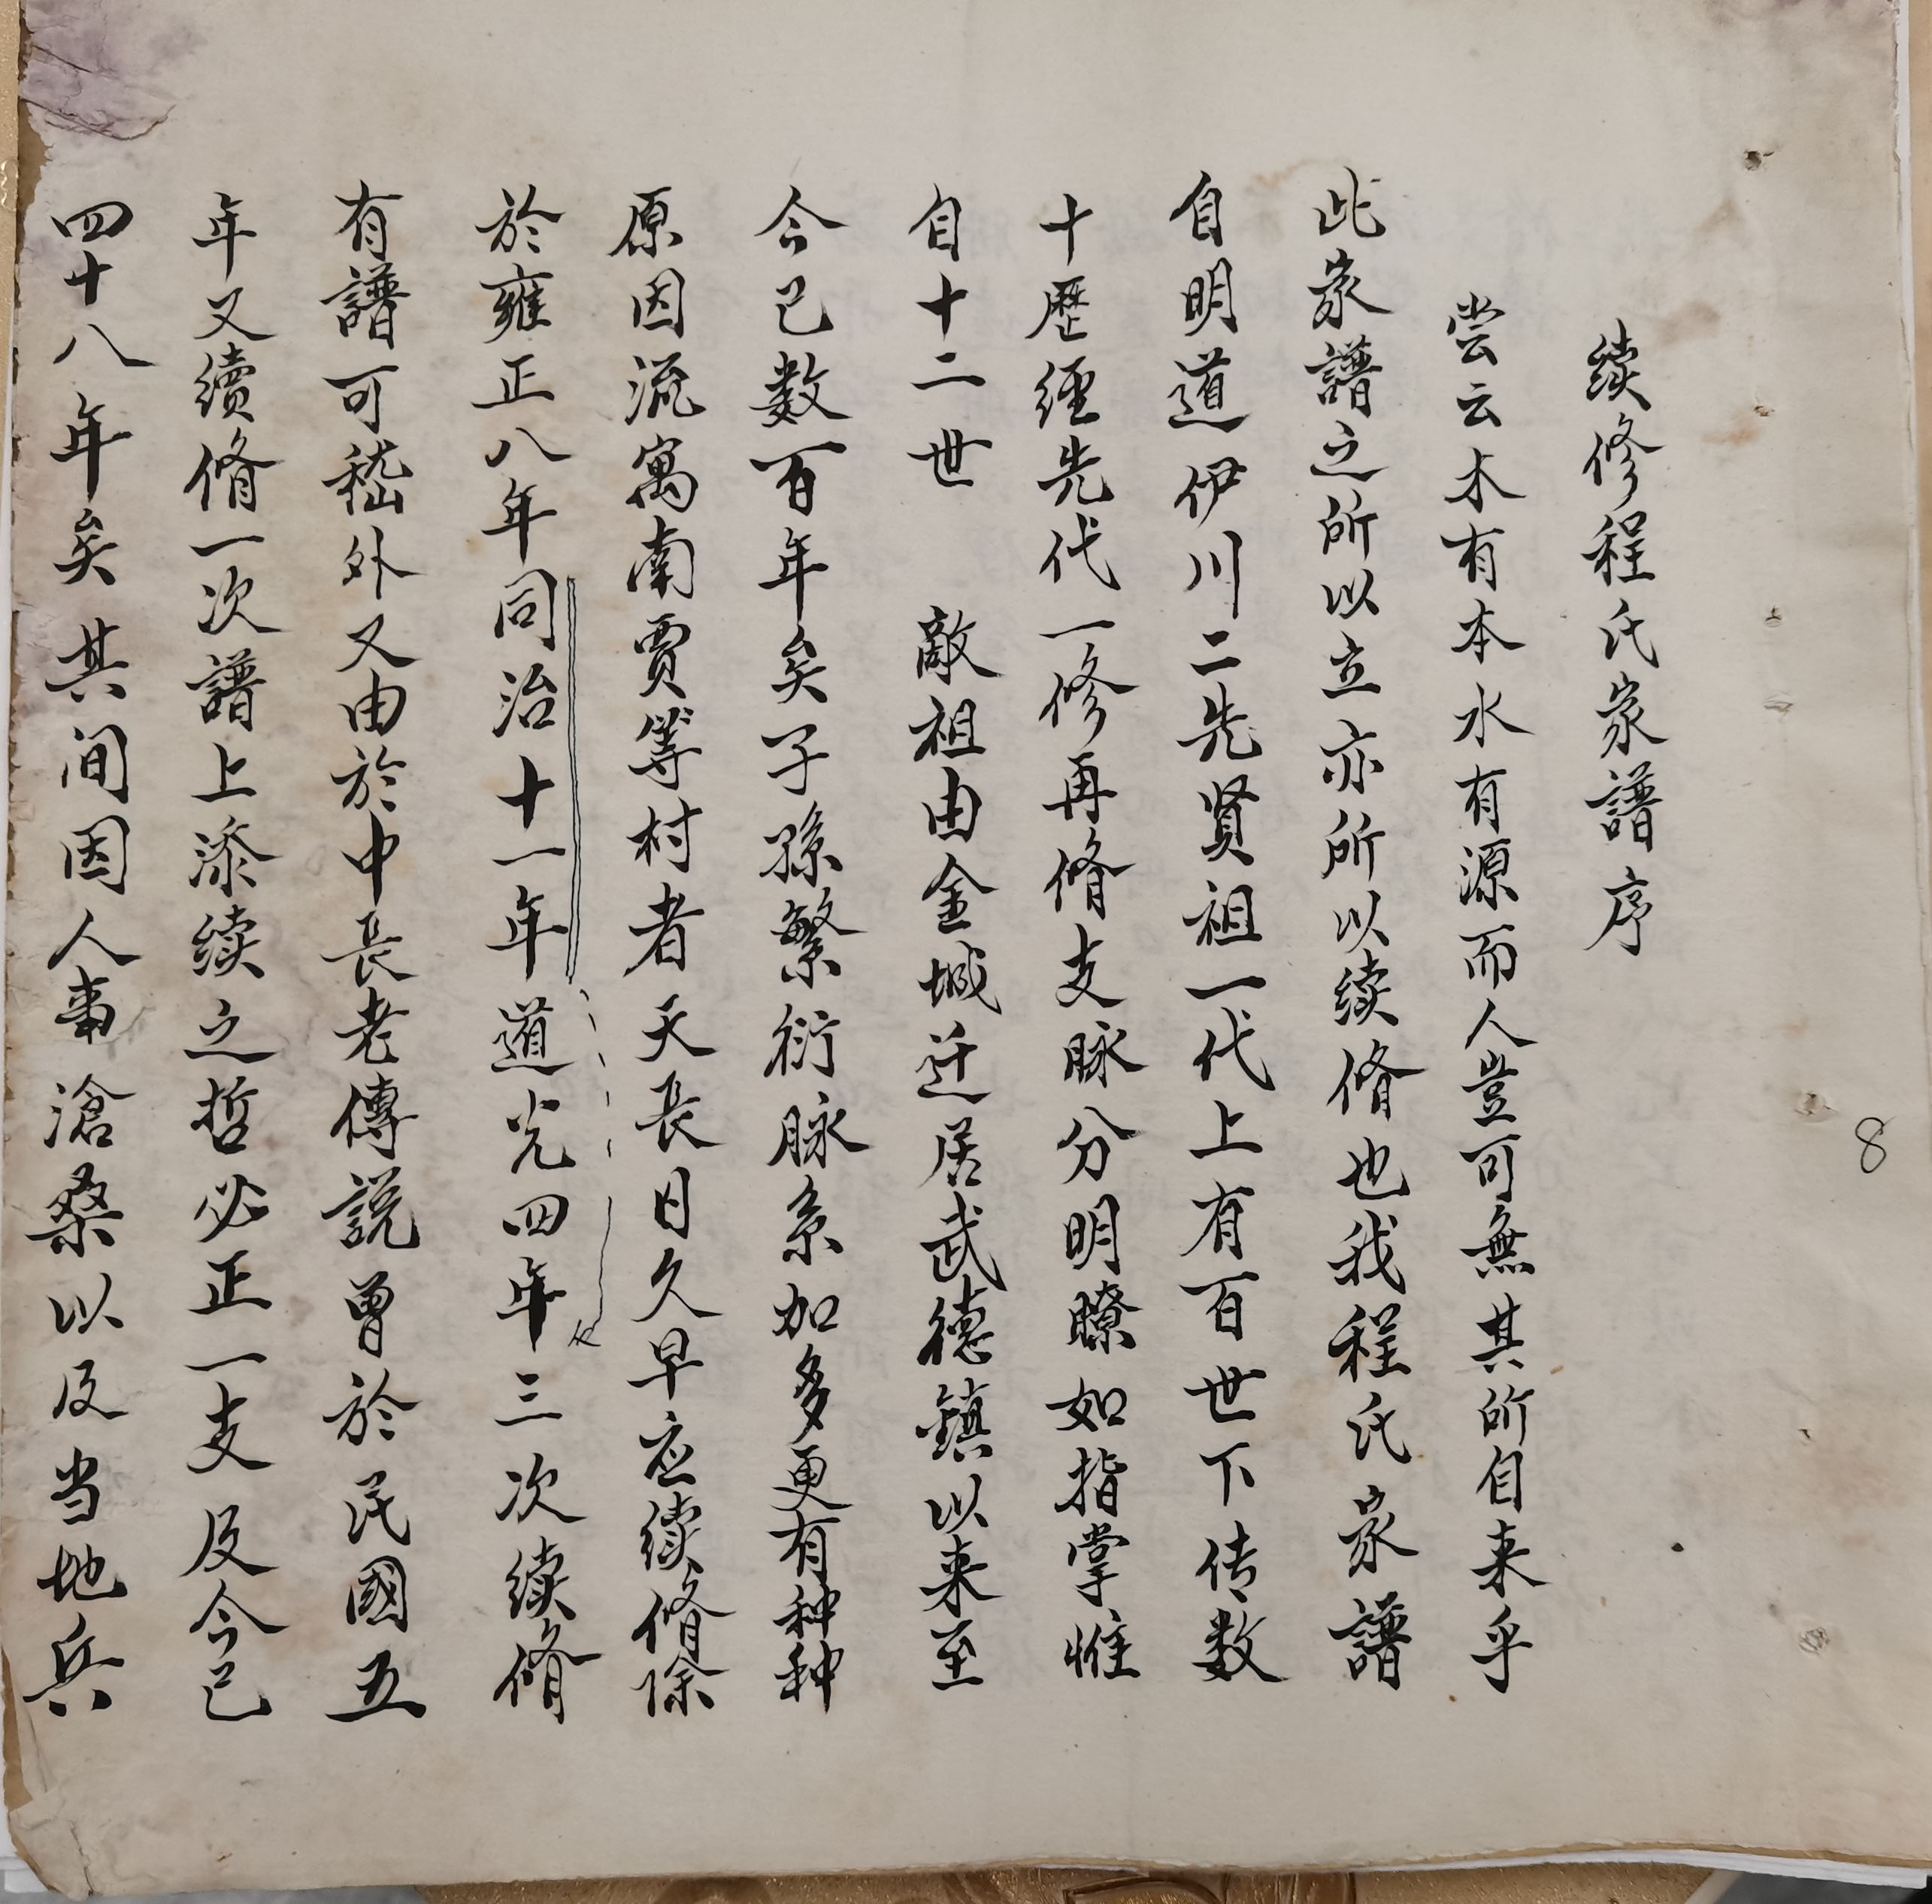 续修程氏家譜序
尝云木有本水有源而人岂可無其所自来乎
此家譜之所以立亦所以续脩也我程氏家譜
自明道伊川二先贤祖一代上有百世下传数
十歷经先代一修再脩支脉分明瞭如指掌惟
自十二世 敵祖由金城迁居武德鎮以来至
今已数百年矣子孫繁衍脉系加多更有种种
原因流寓南賈等村者天長日久早应续脩除
於雍正八年同治十一年道光四年三次续脩
有譜可嵇外又由於中長老傳説曾於民國五
年又續脩一次譜上添续之哲必正一支及今已
四十八年矣其间因人事滄桑以及当地兵
8